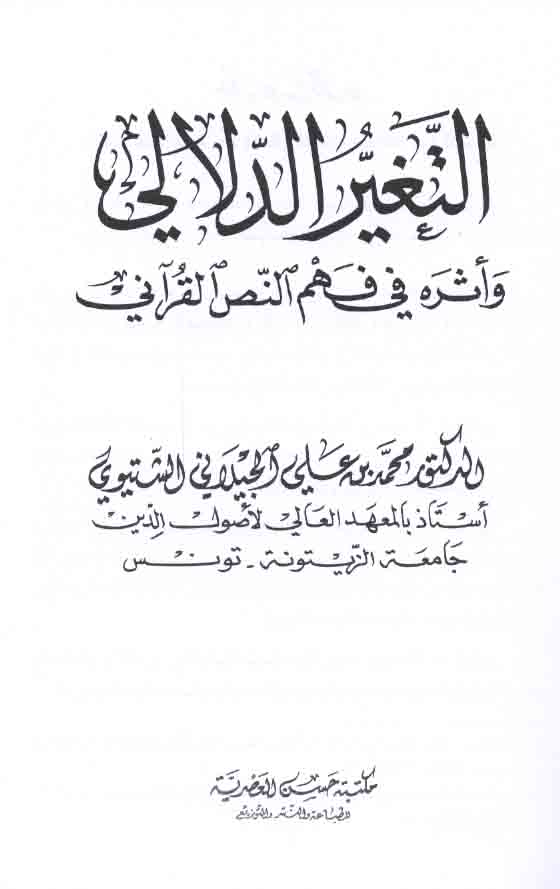 التَّغَيُّر الدَّلالي
وَأثره في فَهْم النّص القُرآني
الدكتور محمَّد بن علي الجيلاني الشتيوي
أستاذ بالمعهد العالي لأصول الدين
جامعة الزيتونة - تونس
مكتبة حسن العصرية
للطباعة والنشر والتوزيع